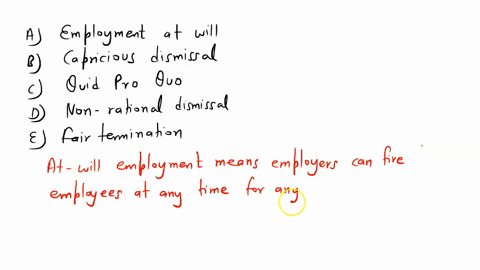 A) Employment at will
B) Capricious dismissal
C) Quid Pro Quo
D) Non-rational dismissal
E) Fair termination
At-will employment means employers can fire
employees at any time for any